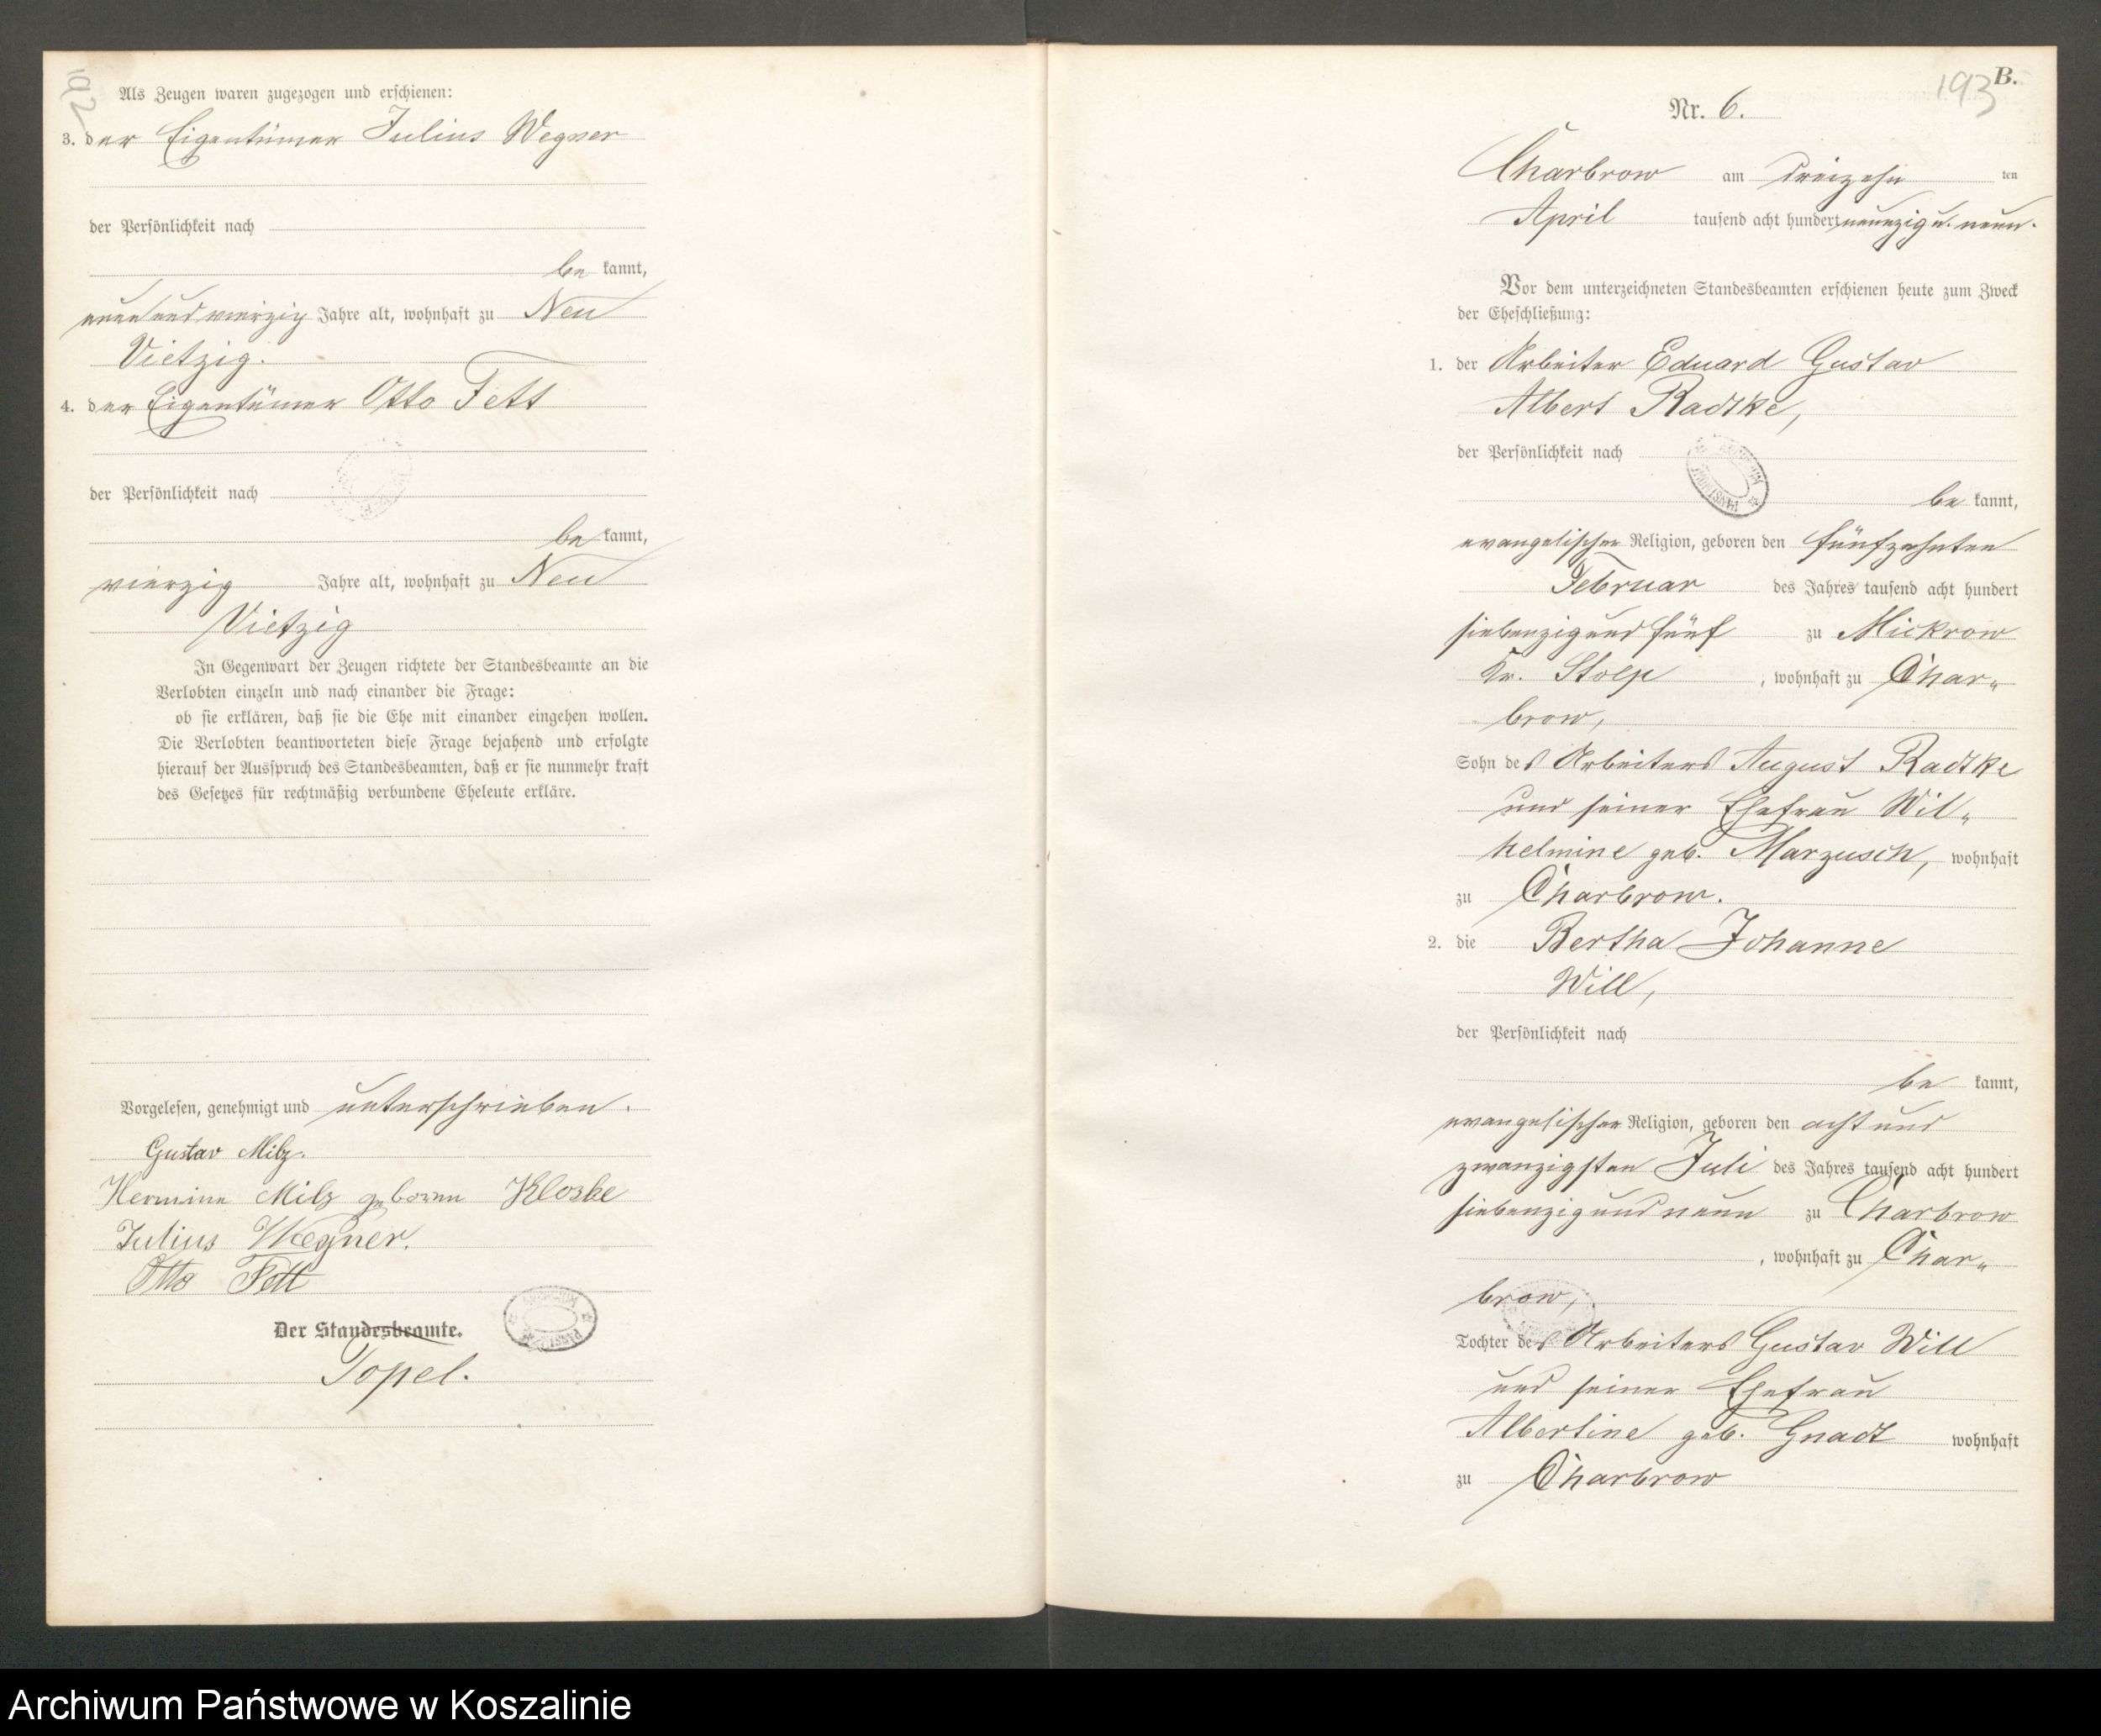 192
Als Zeugen waren zugezogen und erschienen:
3. der Eigentümer Julius Wegner
der Persönlichkeit nach
be kannt,
neun und vierzig Jahre alt, wohnhaft zu Neu
Vietzig.
4. der Eigentümer Otto Fett
der Persönlichkeit nach
be kannt,
vierzig Jahre alt, wohnhaft zu Neu
Vietzig
In Gegenwart der Zeugen richtete der Standesbeamte an die
Verlobten einzeln und nach einander die Frage:
ob sie erklären, daß sie die Ehe mit einander eingehen wollen.
Die Verlobten beantworteten diese Frage bejahend und erfolgte
hierauf der Ausspruch des Standesbeamten, daß er sie nunmehr kraft
des Gesetzes für rechtmäßig verbundene Eheleute erkläre.
Vorgelesen, genehmigt und unterschrieben.
Gustav Milz.
Hermine Milz geboren Kloske
Julius Wegner.
Otto Fett
Der Standesbeamte.
Topel.
B.
193
Nr. 6.
Charbrow am dreizehn ten
April tausend acht hundert neunzig u. neun.
Vor dem unterzeichneten Standesbeamten erschienen heute zum Zweck
der Eheschließung:
1. der Arbeiter Eduard Gustav
Albert Radtke,
der Persönlichkeit nach
be kannt,
evangelischer Religion, geboren den fünfzehnten
Februar des Jahres tausend acht hundert
siebenzig und fünf zu Mickrow
Kr. Stolp, wohnhaft zu Char„
brow,
Sohn des Arbeiters August Radtke
und seiner Ehefrau Wil„
helmine geb. Marzusch, wohnhaft
zu Charbrow.
2. die Bertha Johanne
Will,
der Persönlichkeit nach
be kannt,
evangelischer Religion, geboren den acht und
zwanzigsten Juli des Jahres tausend acht hundert
siebenzig und neun zu Charbrow
, wohnhaft zu Char„
brow,
Tochter des Arbeiters Gustav Will
und seiner Ehefrau
Albertine geb. Gnadt wohnhaft
zu Charbrow
Archiwum Państwowe w Koszalinie